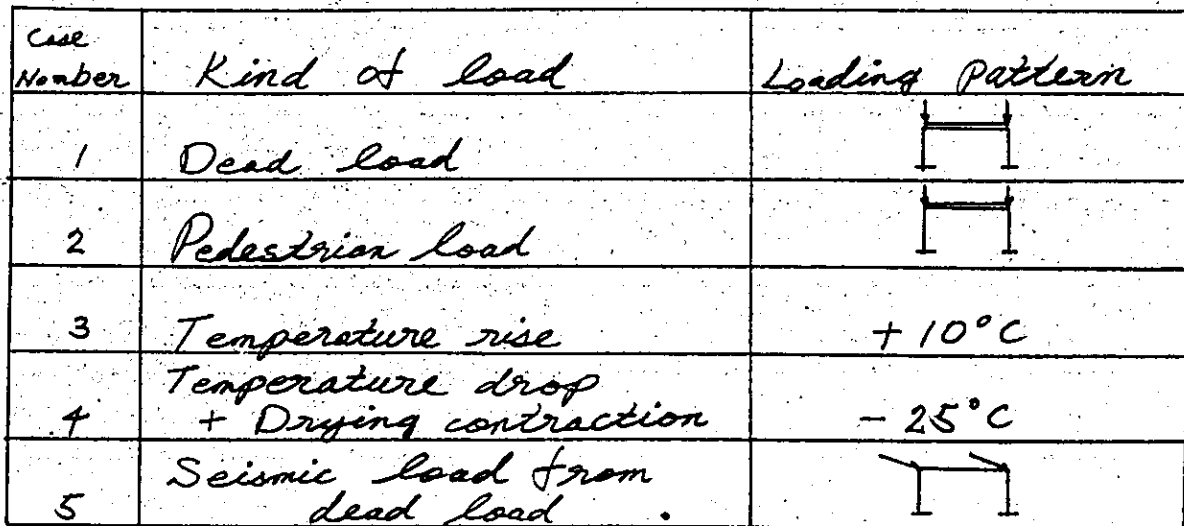 Case
Number
Kind of load
Loading pattern
1
Dead load
2
Pedestrian load
3
Temperature rise
+ 10°C
4
Temperature drop
+ Drying contraction
- 25°C
5
Seismic load from
dead load .